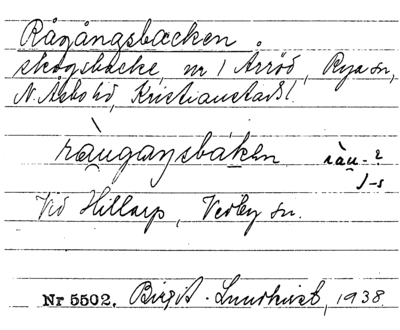 Rågångsbacken
skogsbacke, nr 1 Årröd, Rya sn,
N. Åsbo hd, Kristianstads l.
ràu̯gaŋsbáken ràu̯- 2
Vid Hillarp, Vedby sn.
Nr 5502. Birgit Lundkvist, 1938